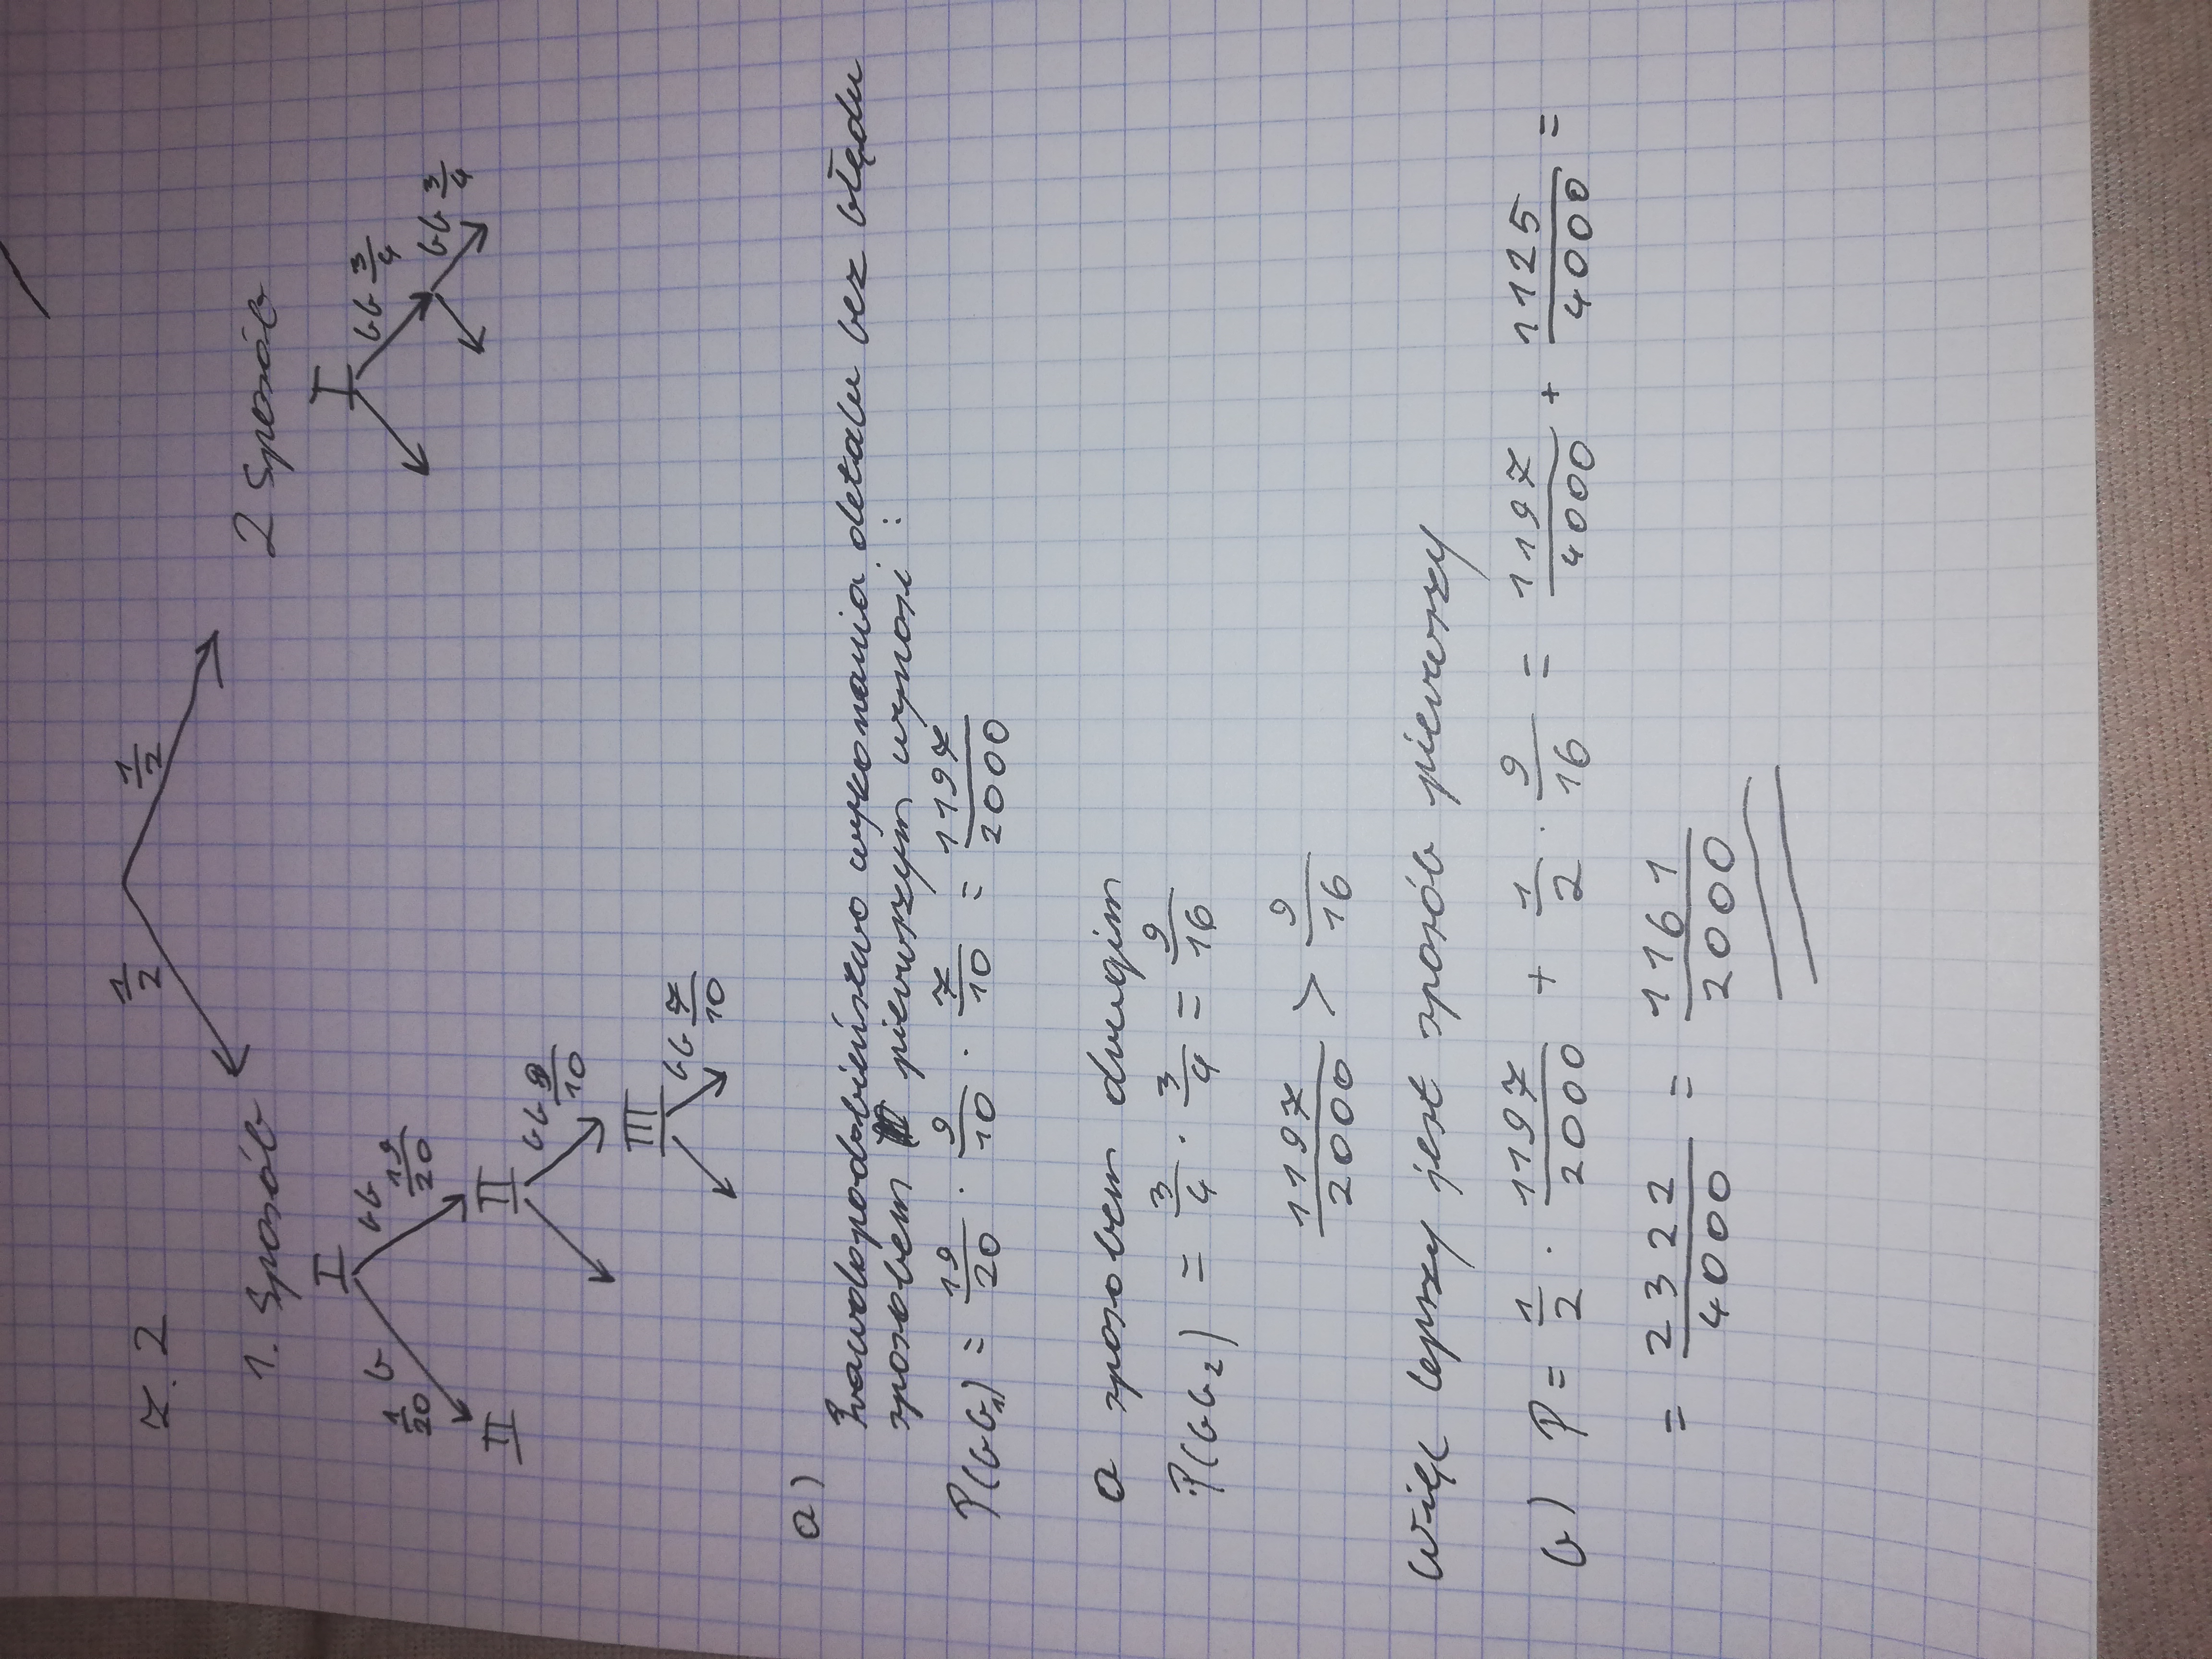 z. 2
1/2 1/2
1. Sposób 2 Sposób
I I
1/20 b bb 19/20 bb 3/4
II II bb 9/10 bb 3/4
III bb 7/10
a)
Prawdopodobieństwo wykonania detalu bez błędu
sposobem pierwszym wynosi:
P(bb₁) = 19/20 · 9/10 · 7/10 = 1197/2000
a sposobem drugim
P(bb₂) = 3/4 · 3/4 = 9/16
1197/2000 > 9/16
więc lepszy jest sposób pierwszy
b) P = 1/2 · 1197/2000 + 1/2 · 9/16 = 1197/4000 + 1125/4000 =
= 2322/4000 = 1161/2000